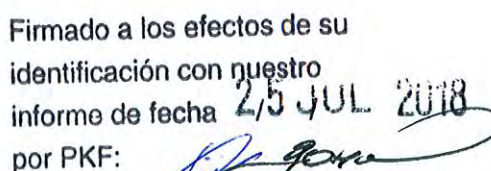 Firmado a los efectos de su
identificación con nuestro
informe de fecha 25 JUL 2018
por PKF: